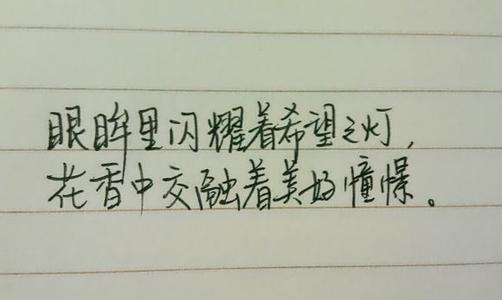 眼眸里闪耀着希望之灯，
花香中交融着美好憧憬。